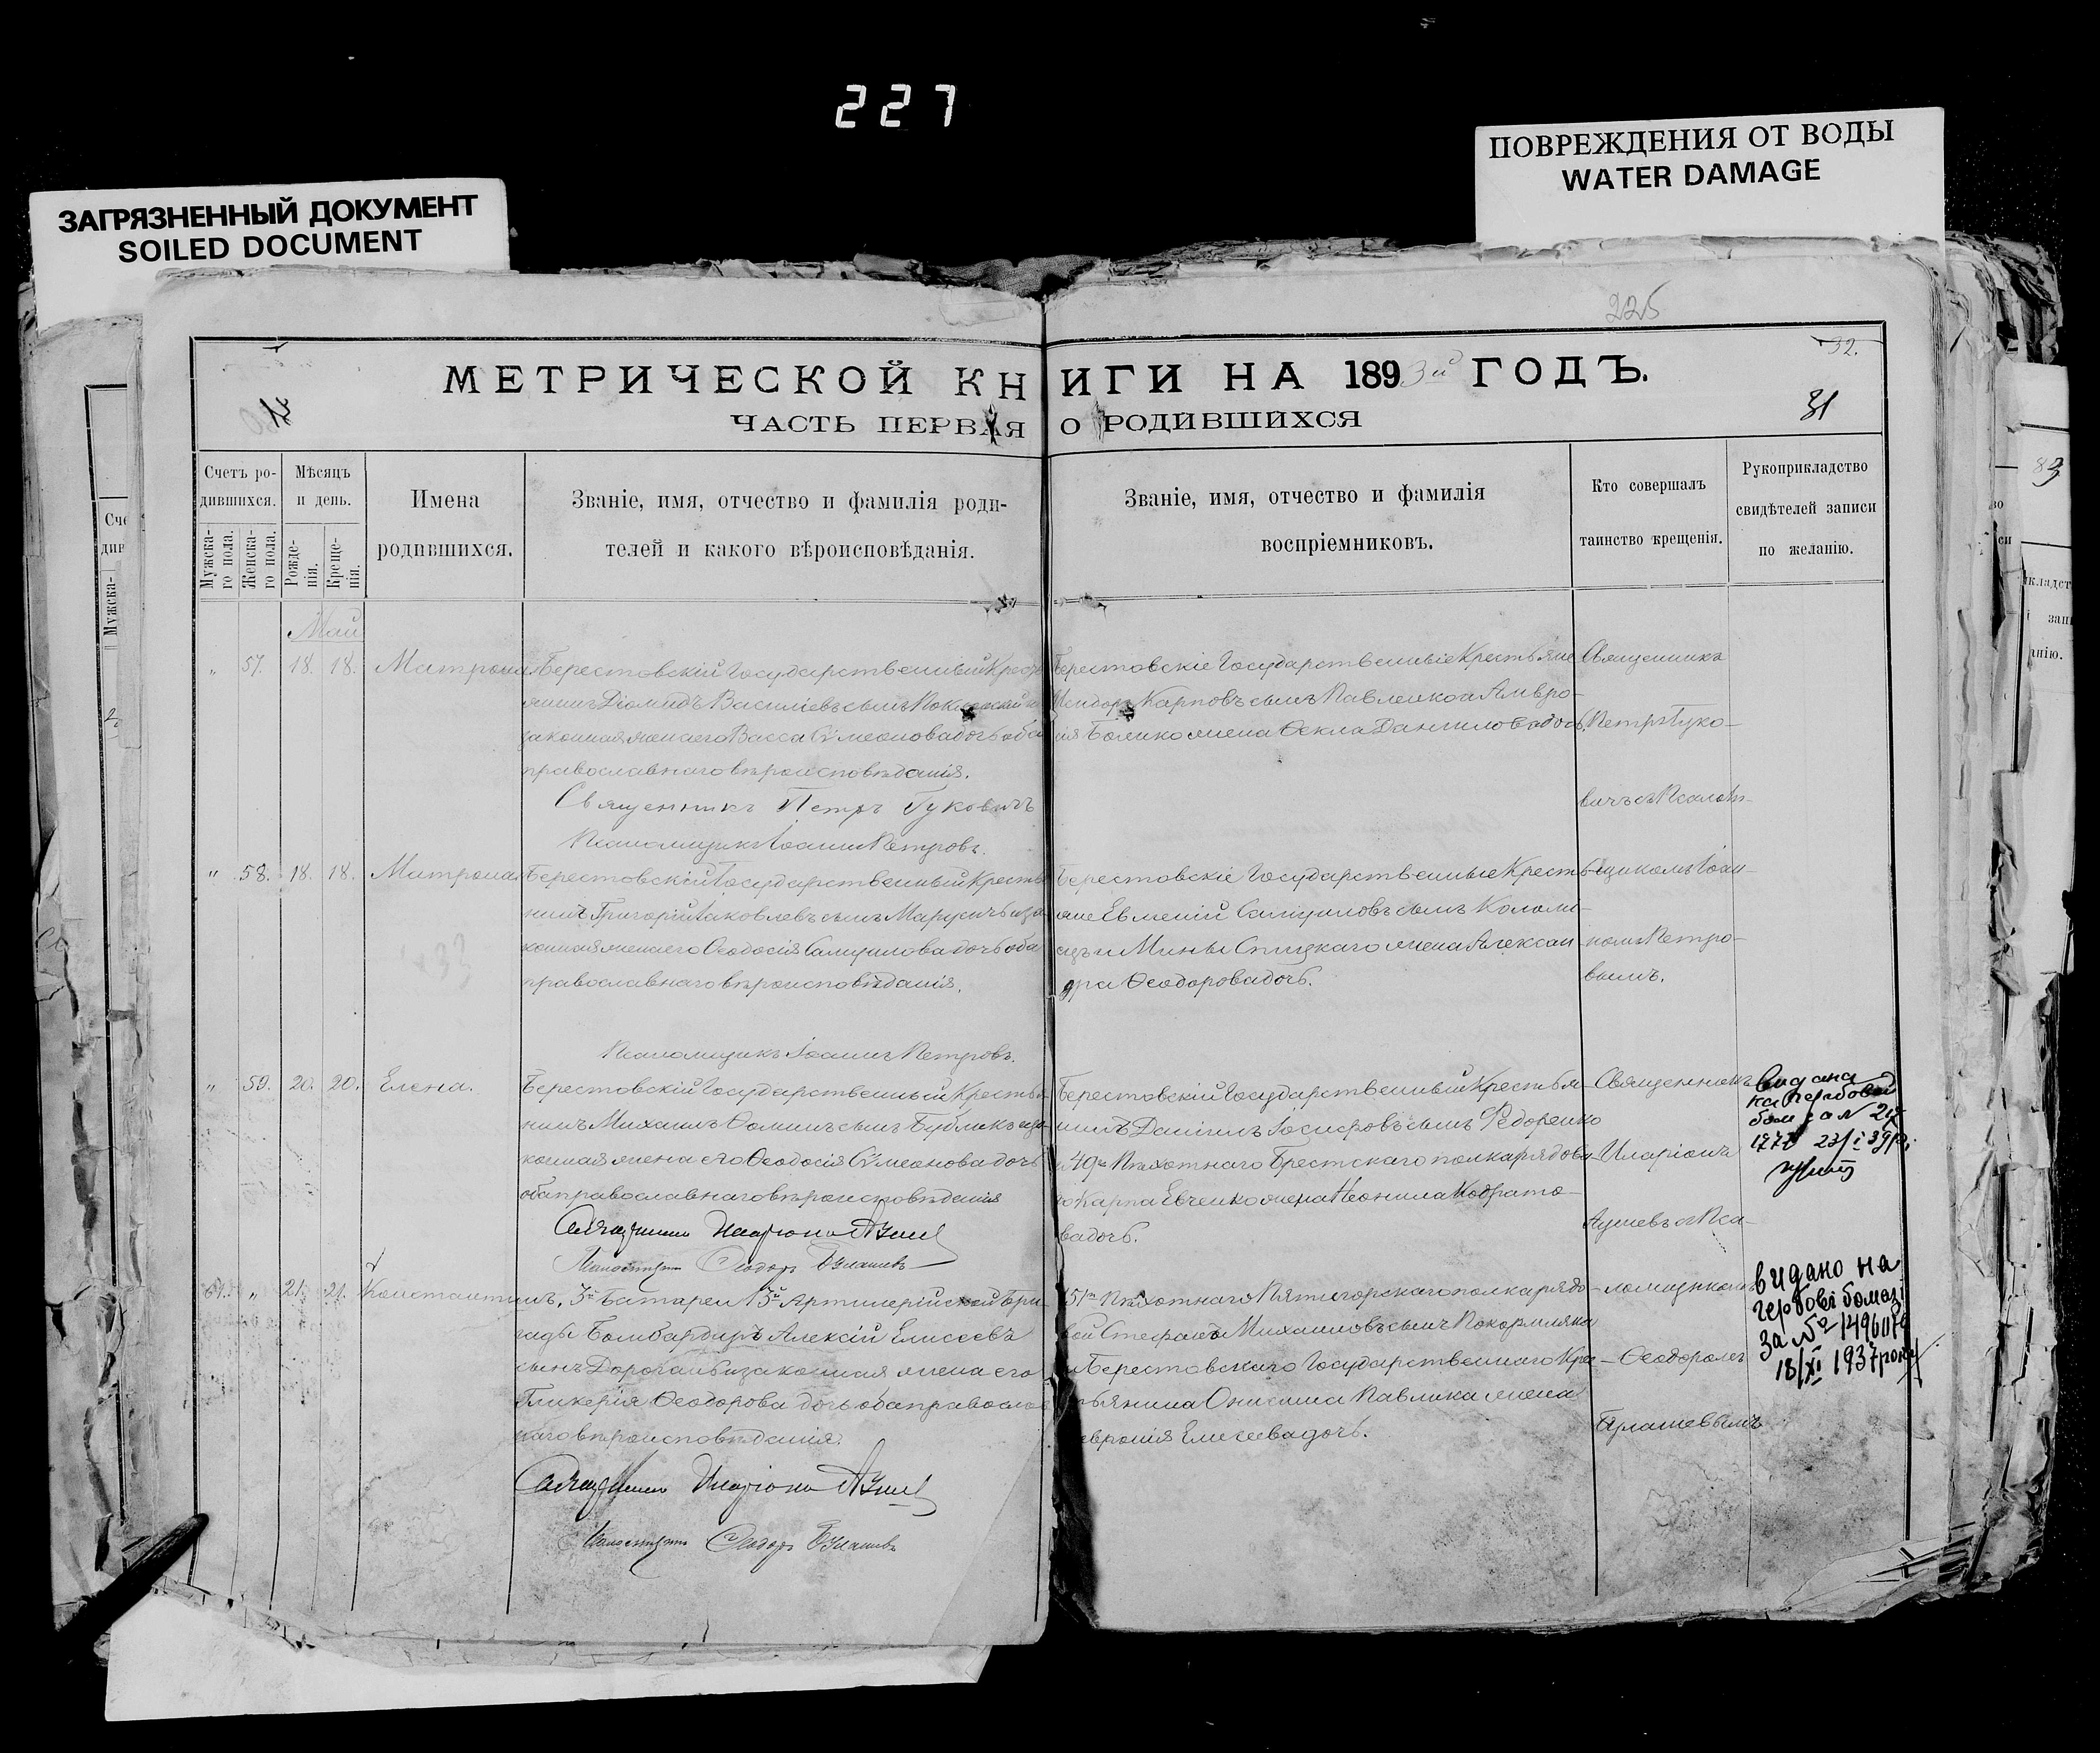 227
ПОВРЕЖДЕНИЯ ОТ ВОДЫ
WATER DAMAGE
ЗАГРЯЗНЕННЫЙ ДОКУМЕНТ
SOILED DOCUMENT
225
32.
МЕТРИЧЕСКОЙ КНИГИ НА 1893й ГОДЪ.
31
ЧАСТЬ ПЕРВАЯ О РОДИВШИХСЯ
Счетъ ро-
дившихся.
Мужска-
го пола.
Женска-
го пола.
Мѣсяцъ
и день.
Рожде-
нія.
Креще-
нія.
Имена
родившихся.
Званіе, имя, отчество и фамилія роди-
телей и какого вѣроисповѣданія.
Званіе, имя, отчество и фамилія
воспріемниковъ.
Кто совершалъ
таинство крещенія.
Рукоприкладство
свидѣтелей записи
по желанію.
Май
" 57. 18. 18. Матрона
Берестовскій Государственный Кресть
янинъ Діомидъ Василіевъ сынъ
законная жена его Васса Сѵмеонова дочь оба
православнаго вѣроисповѣданія.
Священникъ Петръ Гуковичъ
Псаломщикъ Іоаннъ Петровъ.
Берестовскіе Государственные Крестьяне
Карповъ сынъ Павленко и Амвро-
сія Бойко жена Ѳекла Даниилова дочь.
Священникъ
Петръ Гуко-
вичъ съ Псалом-
" 58. 18. 18. Матрона
Берестовскій Государственный Кресть
нинъ Григорій Іаковлевъ сынъ Марусичъ и за
конная жена его Ѳеодосія Самуилова дочь оба
православнаго вѣроисповѣданія.
Псаломщикъ Іоаннъ Петровъ.
Берестовскіе Государственные Кресть-
яне Евменій Самуиловъ сынъ Коломи-
ецъ и Мины Спицкаго жена Алексан-
дра Ѳеодорова дочь.
щикомъ Іоан-
номъ Петро-
вымъ.
" 59. 20. 20. Елена.
Берестовскій Государственный Крестья
нинъ Михаилъ Ѳоминъ сынъ Бубликъ и за-
конная жена его Ѳеодосія Сѵмеонова дочь
оба православнаго вѣроисповѣданія
Священникъ Иларіонъ
Псаломщикъ Ѳеодоръ
Берестовскій Государственный Крестья-
нинъ Даніилъ Іосифовъ сынъ Федоренко
и 49го Пѣхотнаго Брестскаго полка рядова
го Карпа Евченко жена Неонила Кодрато-
ва дочь.
Священникъ
Иларіонъ
съ Пса-
23/I 39р.
61. " 21. 21. Константинъ.
3й Батареи 13й Артилерійской Бри-
гады Бомбардиръ Алексій Елисеевъ
сынъ Дорогань и законная жена его
Гликерія Ѳеодорова дочь оба православ
наго вѣроисповѣданія.
Священникъ Иларіонъ
Псаломщикъ Ѳеодоръ
51го Пѣхотнаго полка рядо-
вой Стефанъ Михаиловъ сынъ Покормляка
и Берестовскаго Государственнаго Крес-
тьянина Онисима Павлика жена
Евронія Елисеева дочь.
ломщикомъ
Ѳеодоромъ
видано на
гербові бомазі
За № 1496079
18/XI 1937 року